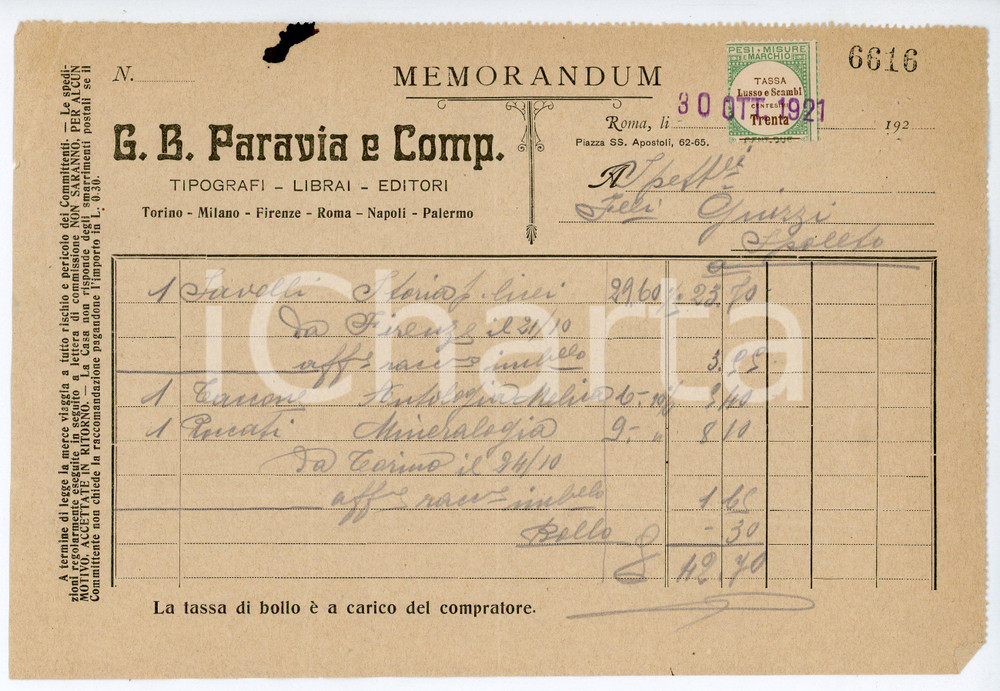 N.
MEMORANDUM
PESI E MISURE
E MARCHIO
TASSA
Lusso e Scambi
CENTESIMI
Trenta
6616
30 OTT. 1921
G. B. Paravia e Comp.
TIPOGRAFI - LIBRAI - EDITORI
Torino - Milano - Firenze - Roma - Napoli - Palermo
Roma, li 192
Piazza SS. Apostoli, 62-65.
A Spett
Guizzi
Spoleto
1 Savelli Storia p. licei 29,60 23.70
da Firenze il 21/10
aff racc imballo 3.
1 Antologia 6- 10%
1 Roccati Mineralogia 9.- " 8 10
da Torino il 24/10
aff racc imballo 1 65
Bollo - 30
42.70
La tassa di bollo è a carico del compratore.
A termine di legge la merce viaggia a tutto rischio e pericolo dei Committenti. — Le spedi-
zioni regolarmente eseguite in seguito a lettera di commissione NON SARANNO, PER ALCUN
MOTIVO, ACCETTATE IN RITORNO. — La Casa non risponde degli smarrimenti postali se il
Committente non chiede la raccomandazione pagandone l'importo in L. 0.30.
iCharta